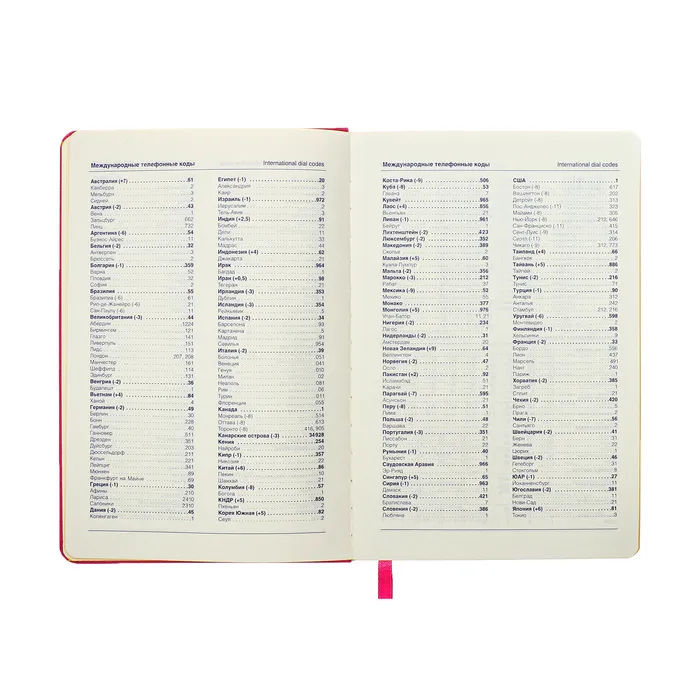 Международные телефонные коды
International dial codes
Австралия (+7) 61
Канберра 2
Мельбурн 3
Сидней 2
Австрия (-2) 43
Вена 1
Зальцбург 662
Линц 732
Аргентина (-6) 54
Буэнос Айрес 11
Бельгия (-2) 32
Антверпен 3
Брюссель 2
Болгария (-1) 359
Варна 52
Пловдив 32
София 2
Бразилия 55
Бразилиа (-6) 61
Рио-де-Жанейро (-6) 21
Сан-Паулу (-6) 11
Великобритания (-3) 44
Абердин 1224
Бирмингем 121
Глазго 141
Ливерпуль 151
Лидс 113
Лондон 207, 208
Манчестер 161
Шеффилд 114
Эдинбург 131
Венгрия (-2) 36
Будапешт 1
Вьетнам (+4) 84
Ханой 4
Германия (-2) 49
Берлин 30
Бонн 228
Гамбург 40
Ганновер 511
Дрезден 351
Дуйсбург 203
Дюссельдорф 211
Кельн 221
Лейпциг 341
Мюнхен 89
Франкфурт на Майне 69
Греция (-1) 30
Афины 210
Лариса 2410
Салоники 2310
Дания (-2) 45
Копенгаген 1
Египет (-1) 20
Александрия 3
Каир 2
Израиль (-1) 972
Иерусалим 2
Тель-Авив 3
Индия (+2,5) 91
Бомбей 22
Дели 11
Калькутта 33
Мадрас 44
Индонезия (+4) 62
Джакарта 21
Ирак 964
Багдад 1
Иран (+0,5) 98
Тегеран 21
Ирландия (-3) 353
Дублин 1
Исландия (-3) 354
Рейкьявик 5
Испания (-2) 34
Барселона 93
Картахена 5
Мадрид 91
Севилья 954
Италия (-2) 39
Болонья 051
Венеция 041
Генуя 010
Милан 02
Неаполь 081
Рим 06
Турин 011
Флоренция 055
Канада 1
Монреаль (-8) 514
Оттава (-8) 613
Торонто (-8) 416, 905
Канарские острова (-3) 34928
Кения 254
Найроби 20
Кипр (-1) 357
Никозия 22
Китай (+5) 86
Пекин 10
Шанхай 21
Колумбия (-8) 57
Богота 1
КНДР (+5) 850
Пхеньян 2
Корея Южная (+5) 82
Сеул 2
Международные телефонные коды
International dial codes
Коста-Рика (-9) 506
Куба (-8) 53
Гавана 7
Кувейт 965
Лаос (+4) 856
Вьентьан 21
Ливан (-1) 961
Бейрут 1
Лихтенштейн (-2) 423
Люксембург (-2) 352
Македония (-2) 389
Скопье 2
Малайзия (+5) 60
Куала-Лумпур 3
Мальта (-2) 356
Марокко (-3) 212
Рабат 37
Мексика (-9) 52
Мехико 55
Монако 377
Монголия (+5) 976
Улан-Батор 11, 21
Нигерия (-2) 234
Лагос 1
Нидерланды (-2) 31
Амстердам 20
Новая Зеландия (+9) 64
Веллингтон 4
Норвегия (-2) 47
Осло 2
Пакистан (+2) 92
Исламабад 51
Карачи 21
Парагвай (-7) 595
Асунсьон 21
Перу (-8) 51
Лима 1
Польша (-2) 48
Варшава 22
Португалия (-3) 351
Лиссабон 21
Порту 22
Румыния (-1) 40
Бухарест 1
Саудовская Аравия 966
Эр-Рияд 1
Сингапур (+5) 65
Сирия (-1) 963
Дамаск 11
Словакия (-2) 421
Братислава 7
Словения (-2) 386
Любляна 1
США 1
Бостон (-8) 617
Вашингтон (-8) 202
Детройт (-8) 313
Лос-Анджелес (-11) 213
Майами (-8) 305
Нью-Йорк (-8) 212, 646
Сан-Франциско (-11) 415
Сент-Луис (-9) 314
Сиэтл (-11) 206
Чикаго (-9) 312, 773
Таиланд (+4) 66
Бангкок 2
Тайвань (+5) 886
Тайбэй 2
Тунис (-2) 216
Тунис 71
Турция (-1) 90
Анкара 312
Анталья 242
Стамбул 212, 216
Уругвай (-6) 598
Монтевидео 2
Финляндия (-1) 358
Хельсинки 9
Франция (-2) 33
Бордо 556
Лион 437
Марсель 491
Нант 240
Париж 1
Хорватия (-2) 385
Загреб 1
Сплит 21
Чехия (-2) 420
Брно 5
Прага 2
Чили (-7) 56
Сантьяго 2
Швейцария (-2) 41
Берн 31
Женева 22
Цюрих 1
Швеция (-2) 46
Гетеборг 31
Стокгольм 8
ЮАР (-1) 27
Иоханнесбург 11
Югославия (-2) 381
Белград 11
Нови-Сад 21
Япония (+6) 81
Токио 3